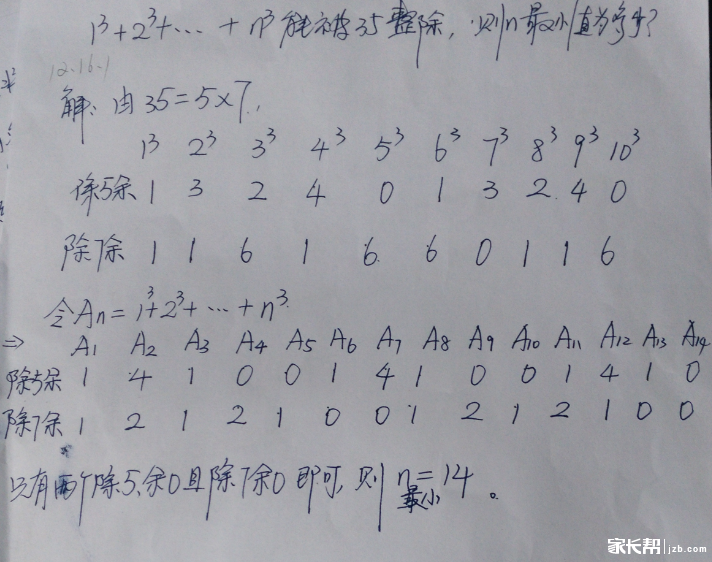 1³+2³+…+n³能被35整除，则n最小值为多少？
12.16.1
解：由35=5×7，
1³ 2³ 3³ 4³ 5³ 6³ 7³ 8³ 9³ 10³
除5余 1 3 2 4 0 1 3 2 4 0
除7余 1 1 6 1 6 6 0 1 1 6
令An=1³+2³+…+n³.
⇒ A1 A2 A3 A4 A5 A6 A7 A8 A9 A10 A11 A12 A13 A14
除5余 1 4 1 0 0 1 4 1 0 0 1 4 1 0
除7余 1 2 1 2 1 0 0 1 2 1 2 1 0 0
只有两个除5余0且除7余0即可，则n最小=14。
家长帮 jzb.com